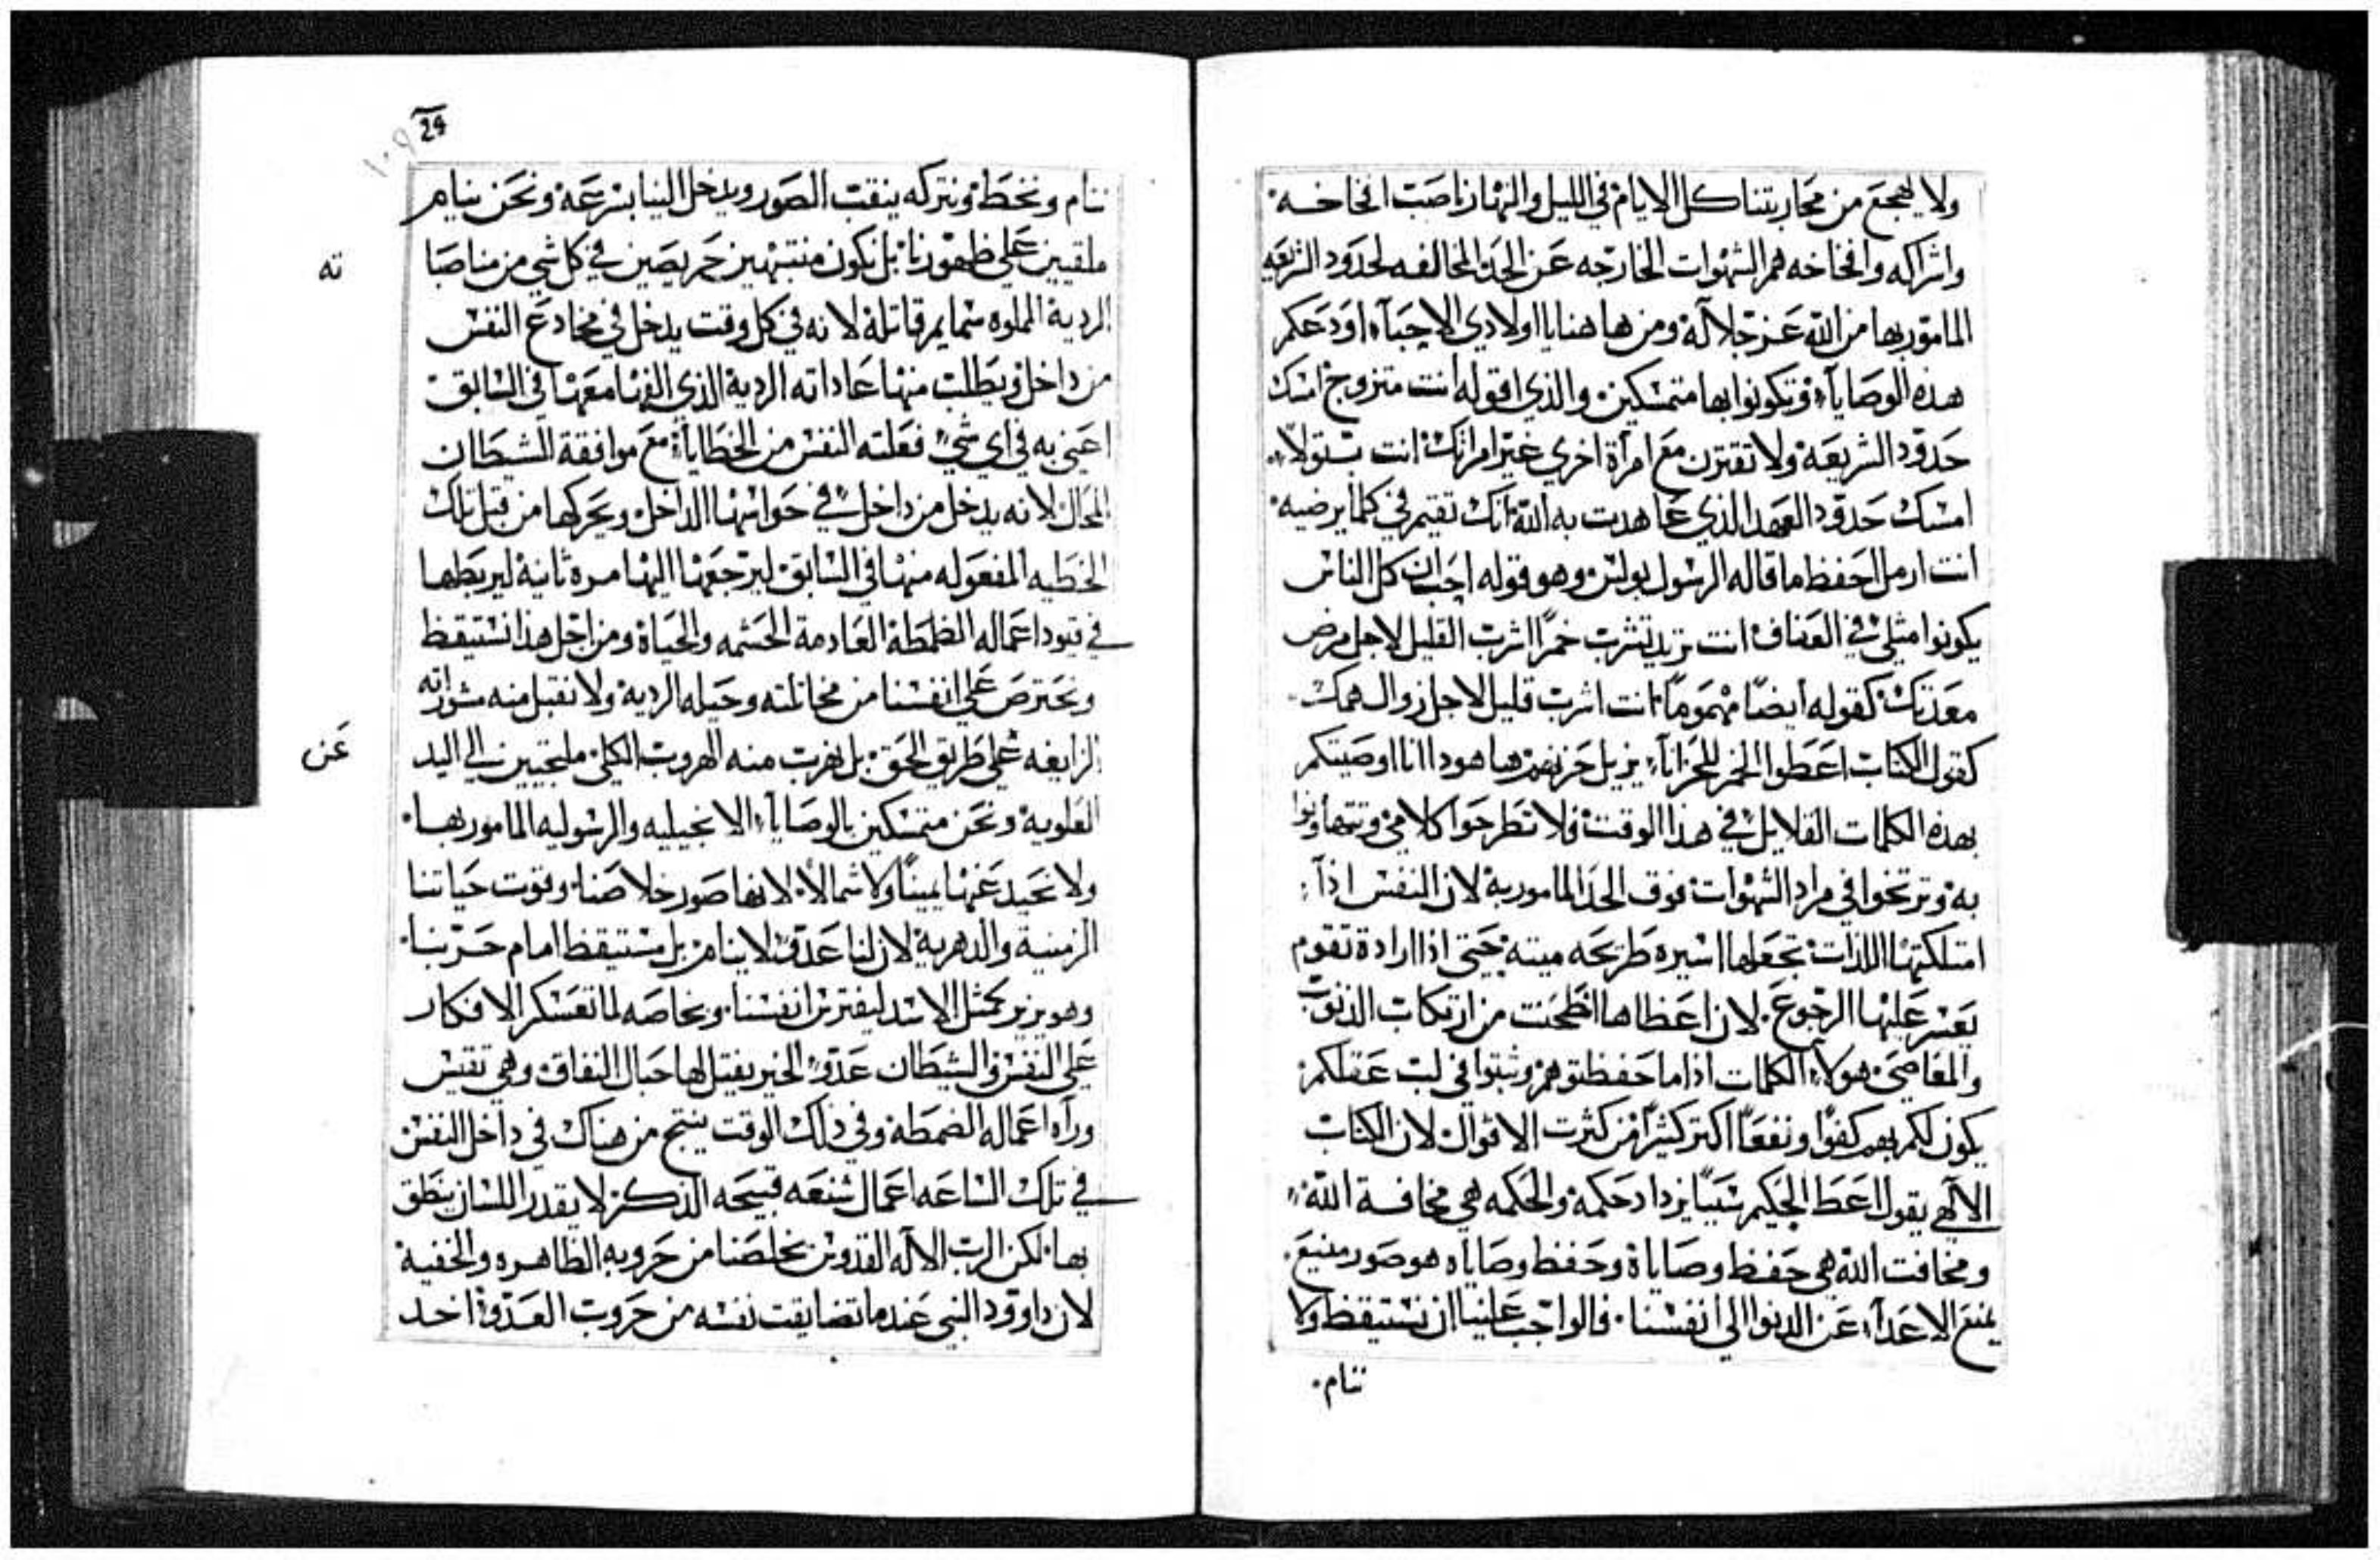 ولا يهجع من محاربتنا كل الايام في الليل والنهار ناصب افخاخه
واشراكه وافخاخه هم الشهوات الخارجه عن الحد المخالفه لحدود الشريعه
المامور بها من الله عز جلاله ومن هاهنا يا اولادي الاحباء اودعكم
هذه الوصاياء وتكونوا بها متمسكين والذي اقوله انت متزوج امسك
حدود الشريعه ولا تقترن مع امرأة اخري غير امراتك انت بتولاً
امسك حدود العهد الذي عاهدت به الله انك تقيم في كلما يرضيه
انت ارمل احفظ ما قاله الرسول بولس وهو قوله احب ان كل الناس
يكونوا مثلي في العفاف انت تريد تشرب خمرًا اشرب القليل لاجل مرض
معدتك كقوله ايضًا مهمومًا انت اشرب قليل لاجل زوال همك
كقول الكتاب اعطوا الخمر للحزاناء يزيل حزنهم ها هودا انا اوصيتكم
بهذه الكلمات القلايل في هذا الوقت فلا تطرحوا كلامي وتتهاونوا
به وترتخوا في مراد الشهوات فوق الحد المامور به لان النفس اذاً
امتلكتها اللذات تجعلها اسيره طريحه ميته حتي اذا ارادة تقوم
يعسر عليها الرجوع لان اعظاها اظمحنت من ارتكاب الذنوب
والمعاصي هولاء الكلمات اذا ما حفظتوهم وثبتوا في لب عقلكم
يكون لكم بهم كفوًا ونفعًا اكتر كثيرًا من كثرت الاقوال لان الكتاب
الالهي يقول اعط الحكيم سببًا يزداد حكمة والحكمه هي مخافة الله
ومخافت الله هي حفظ وصاياة وحفظ وصاياه هو صور منيع
يمنع الاعداء عن الدنوا الي انفسنا فالواجب علينا ان نستيقظ ولا
ننام
24
ننام ونخط ونتركه ينقب الصور ويدخل الينا بسرعه ونحن نيام
ملقيين علي ظهورنا بل نكون منتبهين حريصين في كل شي من مناصبا
ته
الرديه المملوه سمايم قاتلة لانه في كل وقت يدخل في مخادع النفس
من داخل ويطلب منها عاداته الردية الذي الفها معها في السابق
اعني به في اي شيء فعلته النفس من الخطاياء مع موافقة الشيطان
المحال لانه يدخل من داخل في حواسها الداخل ويحركها من قبل تلك
الخطيه المفعوله منها في السابق ليرجعها اليها مرة ثانية ليربطها
في قيود اعماله الظمطة العادمة الحشمه والحياة ومن اجل هذا نستيقظ
ونحترص علي انفسنا من مخاتلته وحيله الردية ولا نقبل منه مشوراته
الزايغه علي طريق الحق بل نهرب منه الهروب الكلي ملتجيين الي اليد
عن
العلوية ونحن متمسكين بالوصاياء الانجيليه والرسوليه المامور بها
ولا نحيد عنها يمينًا ولا شمالاً لانها صور خلاصنا وقوت حياتنا
الزمنية والدهرية لان لنا عدو لا ينام بل مستيقظ امام حربنا
وهو يزير كمثل الاسد ليفترس انفسنا وبخاصه لما تعسكر الافكار
علي النفس والشيطان عدو الخير يفتل لها حبال النفاق وهي تفتش
وراه اعماله الضمطة وفي ذلك الوقت ينتج من هناك في داخل النفس
في تلك الساعه اعمال شنعه قبيحه الذكر لا يقدر اللسان ينطق
بها لكن الرب الاله القدوس يخلصنا من حروبه الظاهره والخفية
لان داوود النبي عندما تضايقت نفسه من حروب العدو اخد